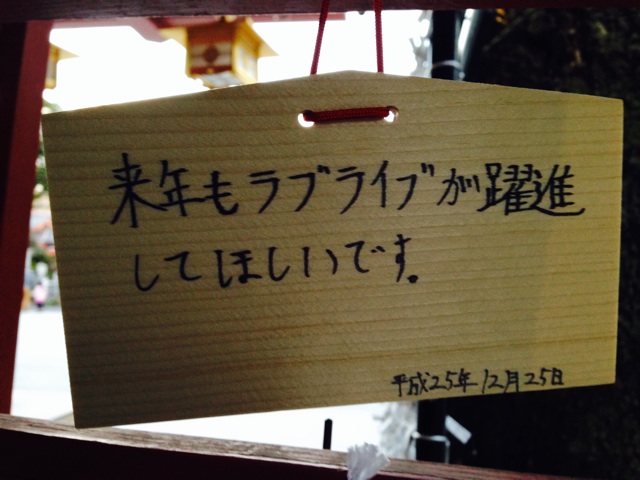 来年もラブライブが躍進
してほしいです。
平成25年12月25日